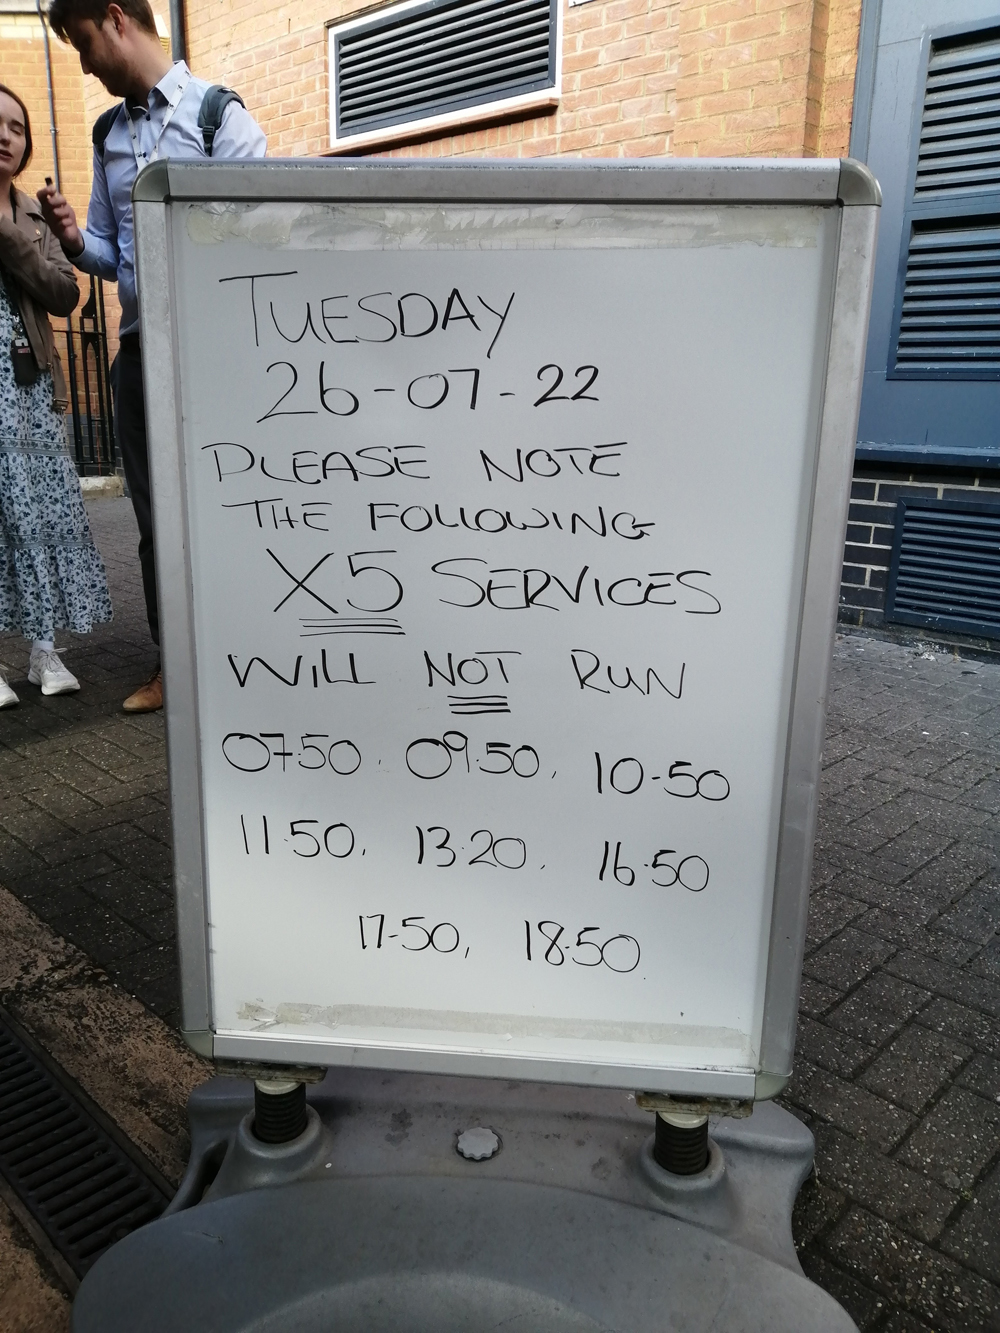 TUESDAY
26-07-22
PLEASE NOTE
THE FOLLOWING
X5 SERVICES
WILL NOT RUN
07.50, 09.50, 10-50
11.50, 13.20, 16.50
17-50, 18.50